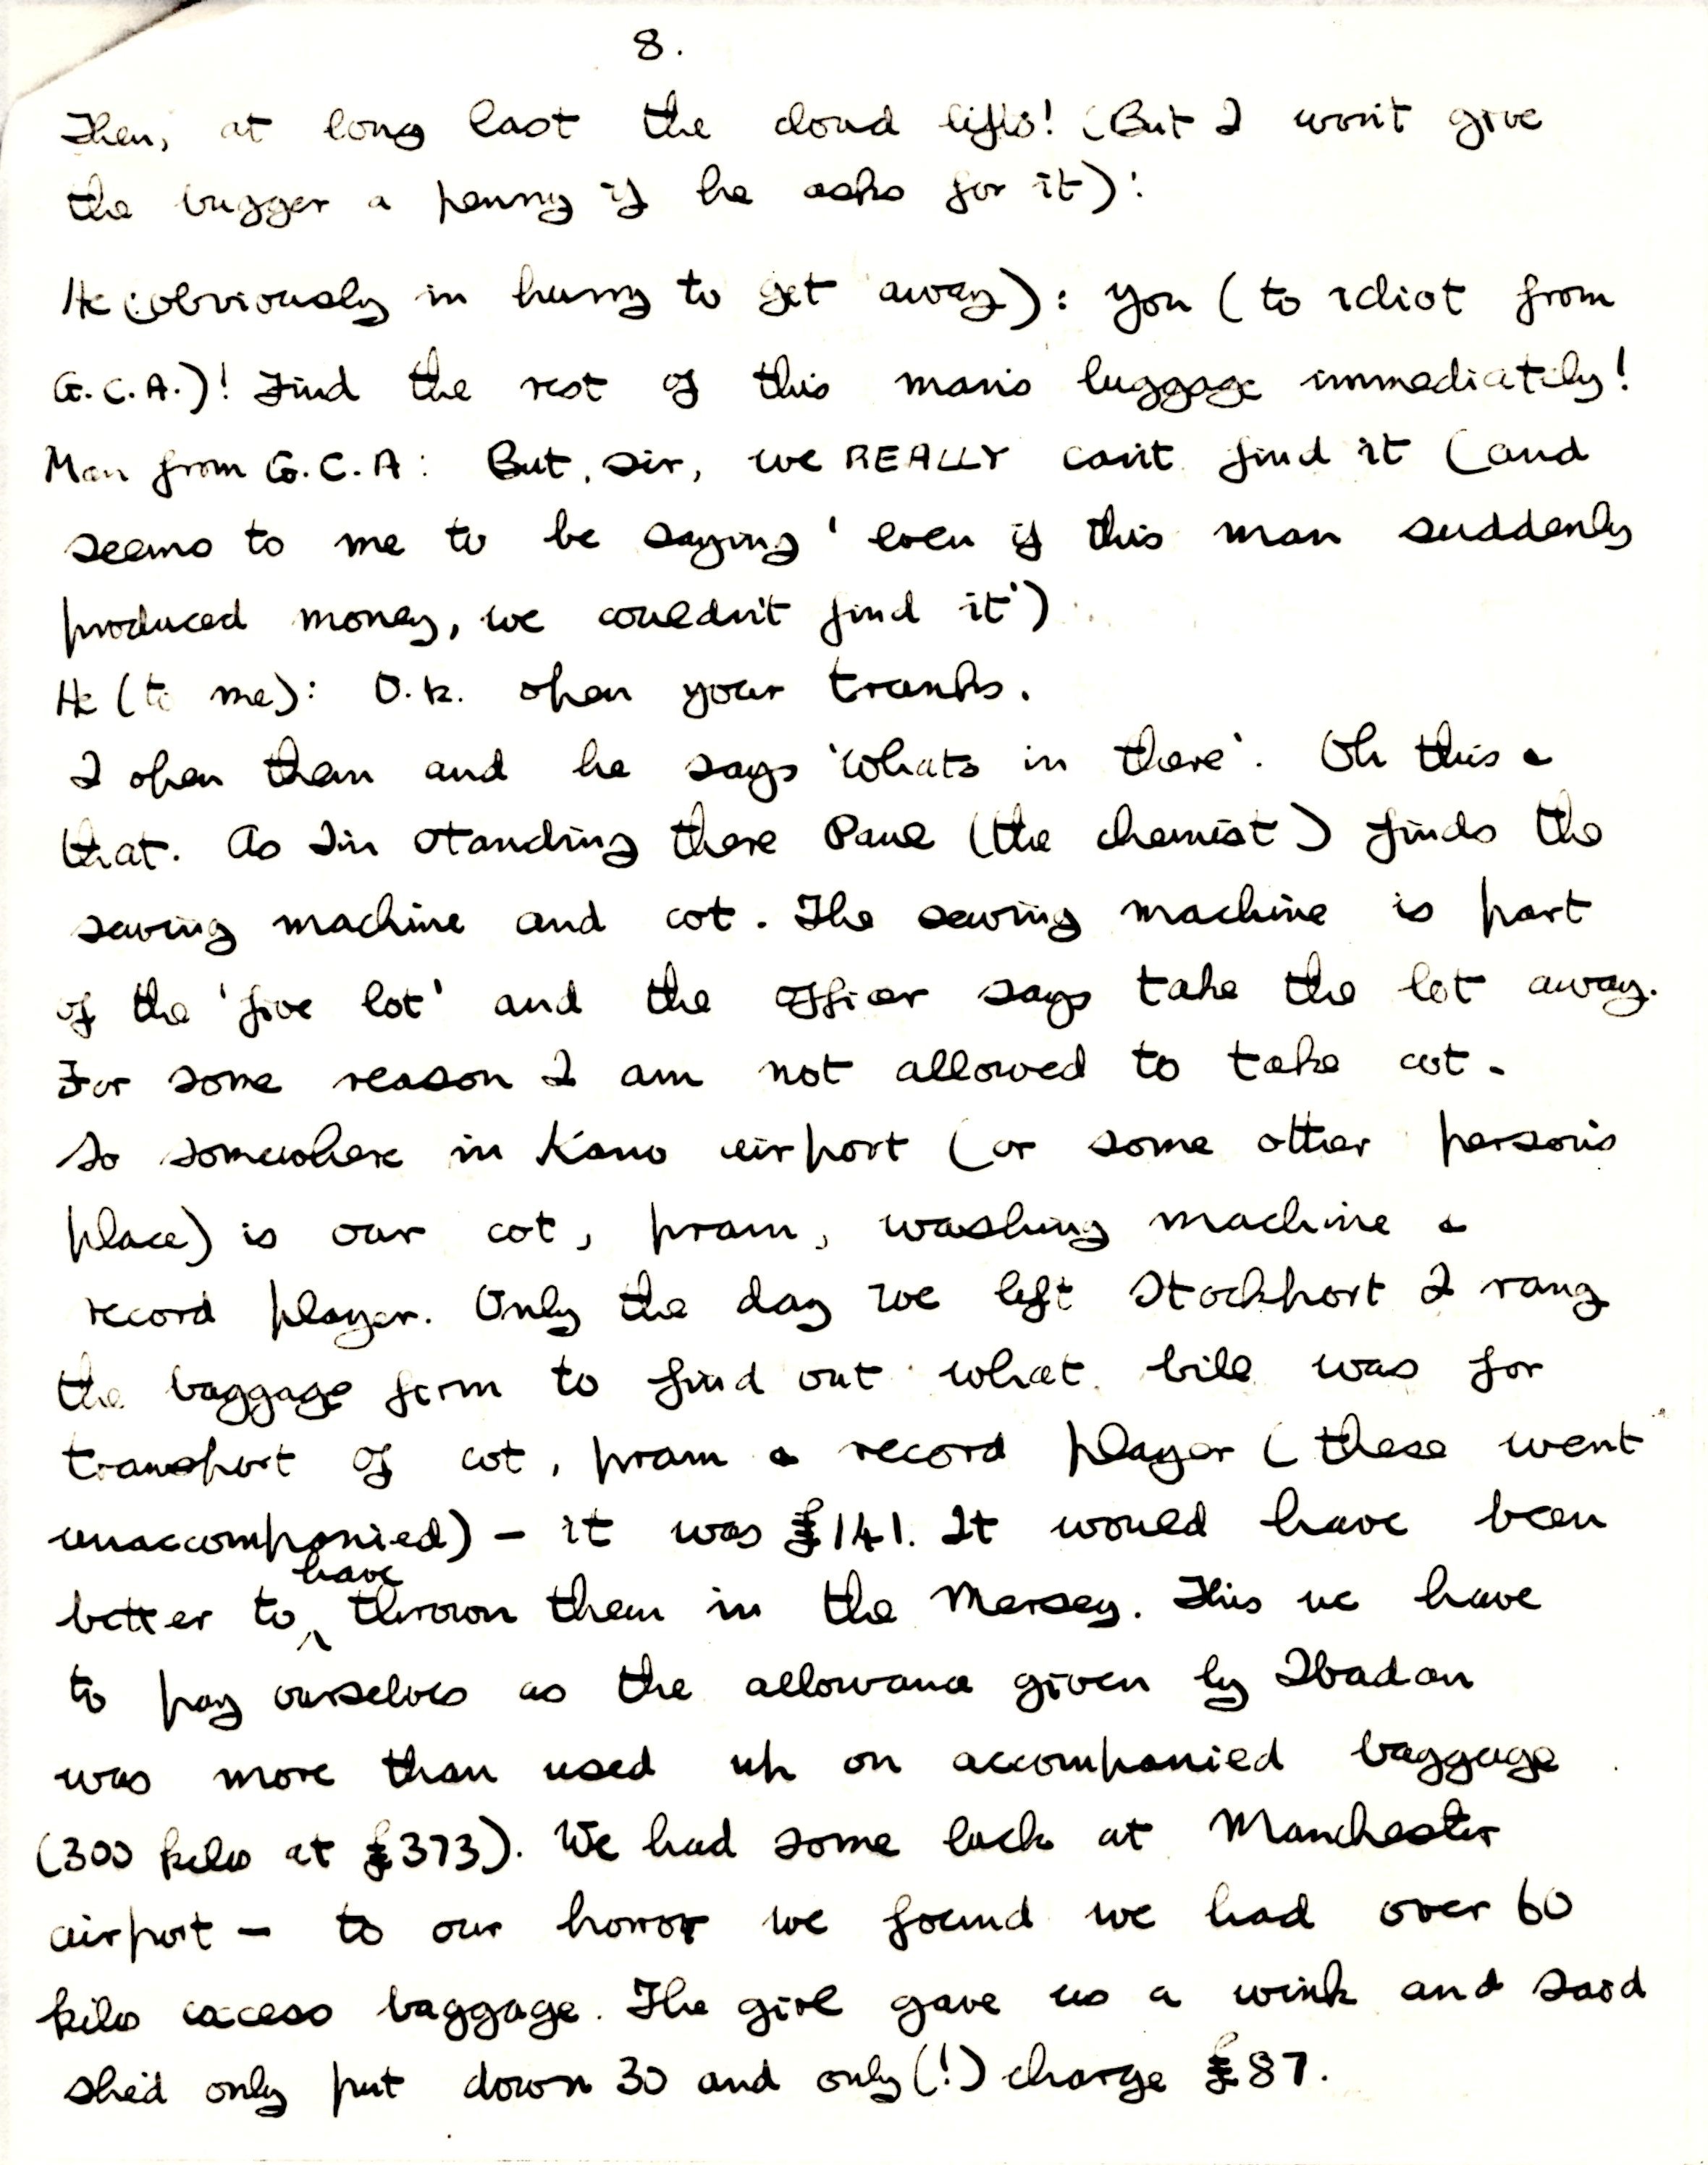 8.
Then, at long last the cloud lifts! (But I won't give
the bugger a penny if he asks for it):
He (obviously in hurry to get away): you (to idiot from
G.C.A.)! Find the rest of this man's luggage immediately!
Man from G.C.A: But, sir, we REALLY can't find it (and
seems to me to be saying 'even if this man suddenly
produced money, we couldn't find it')
He (to me): O.K. open your trunks.
I open them and he says 'Whats in there'. Oh this &
that. As I'm standing there Paul (the chemist) finds the
sewing machine and cot. The sewing machine is part
of the 'five lot' and the officer says take the lot away.
For some reason I am not allowed to take cot.
So somewhere in Kano airport (or some other person's
place) is our cot, pram, washing machine &
record player. Only the day we left Stockport I rang
the baggage firm to find out what bill was for
transport of cot, pram & record player (these went
unaccompanied) - it was £141. It would have been
better to have thrown them in the Mersey. This we have
to pay ourselves as the allowance given by Ibadan
was more than used up on accompanied baggage
(300 kilo at £373). We had some luck at Manchester
airport - to our horror we found we had over 60
kilo excess baggage. The girl gave us a wink and said
she'd only put down 30 and only (!) charge £87.